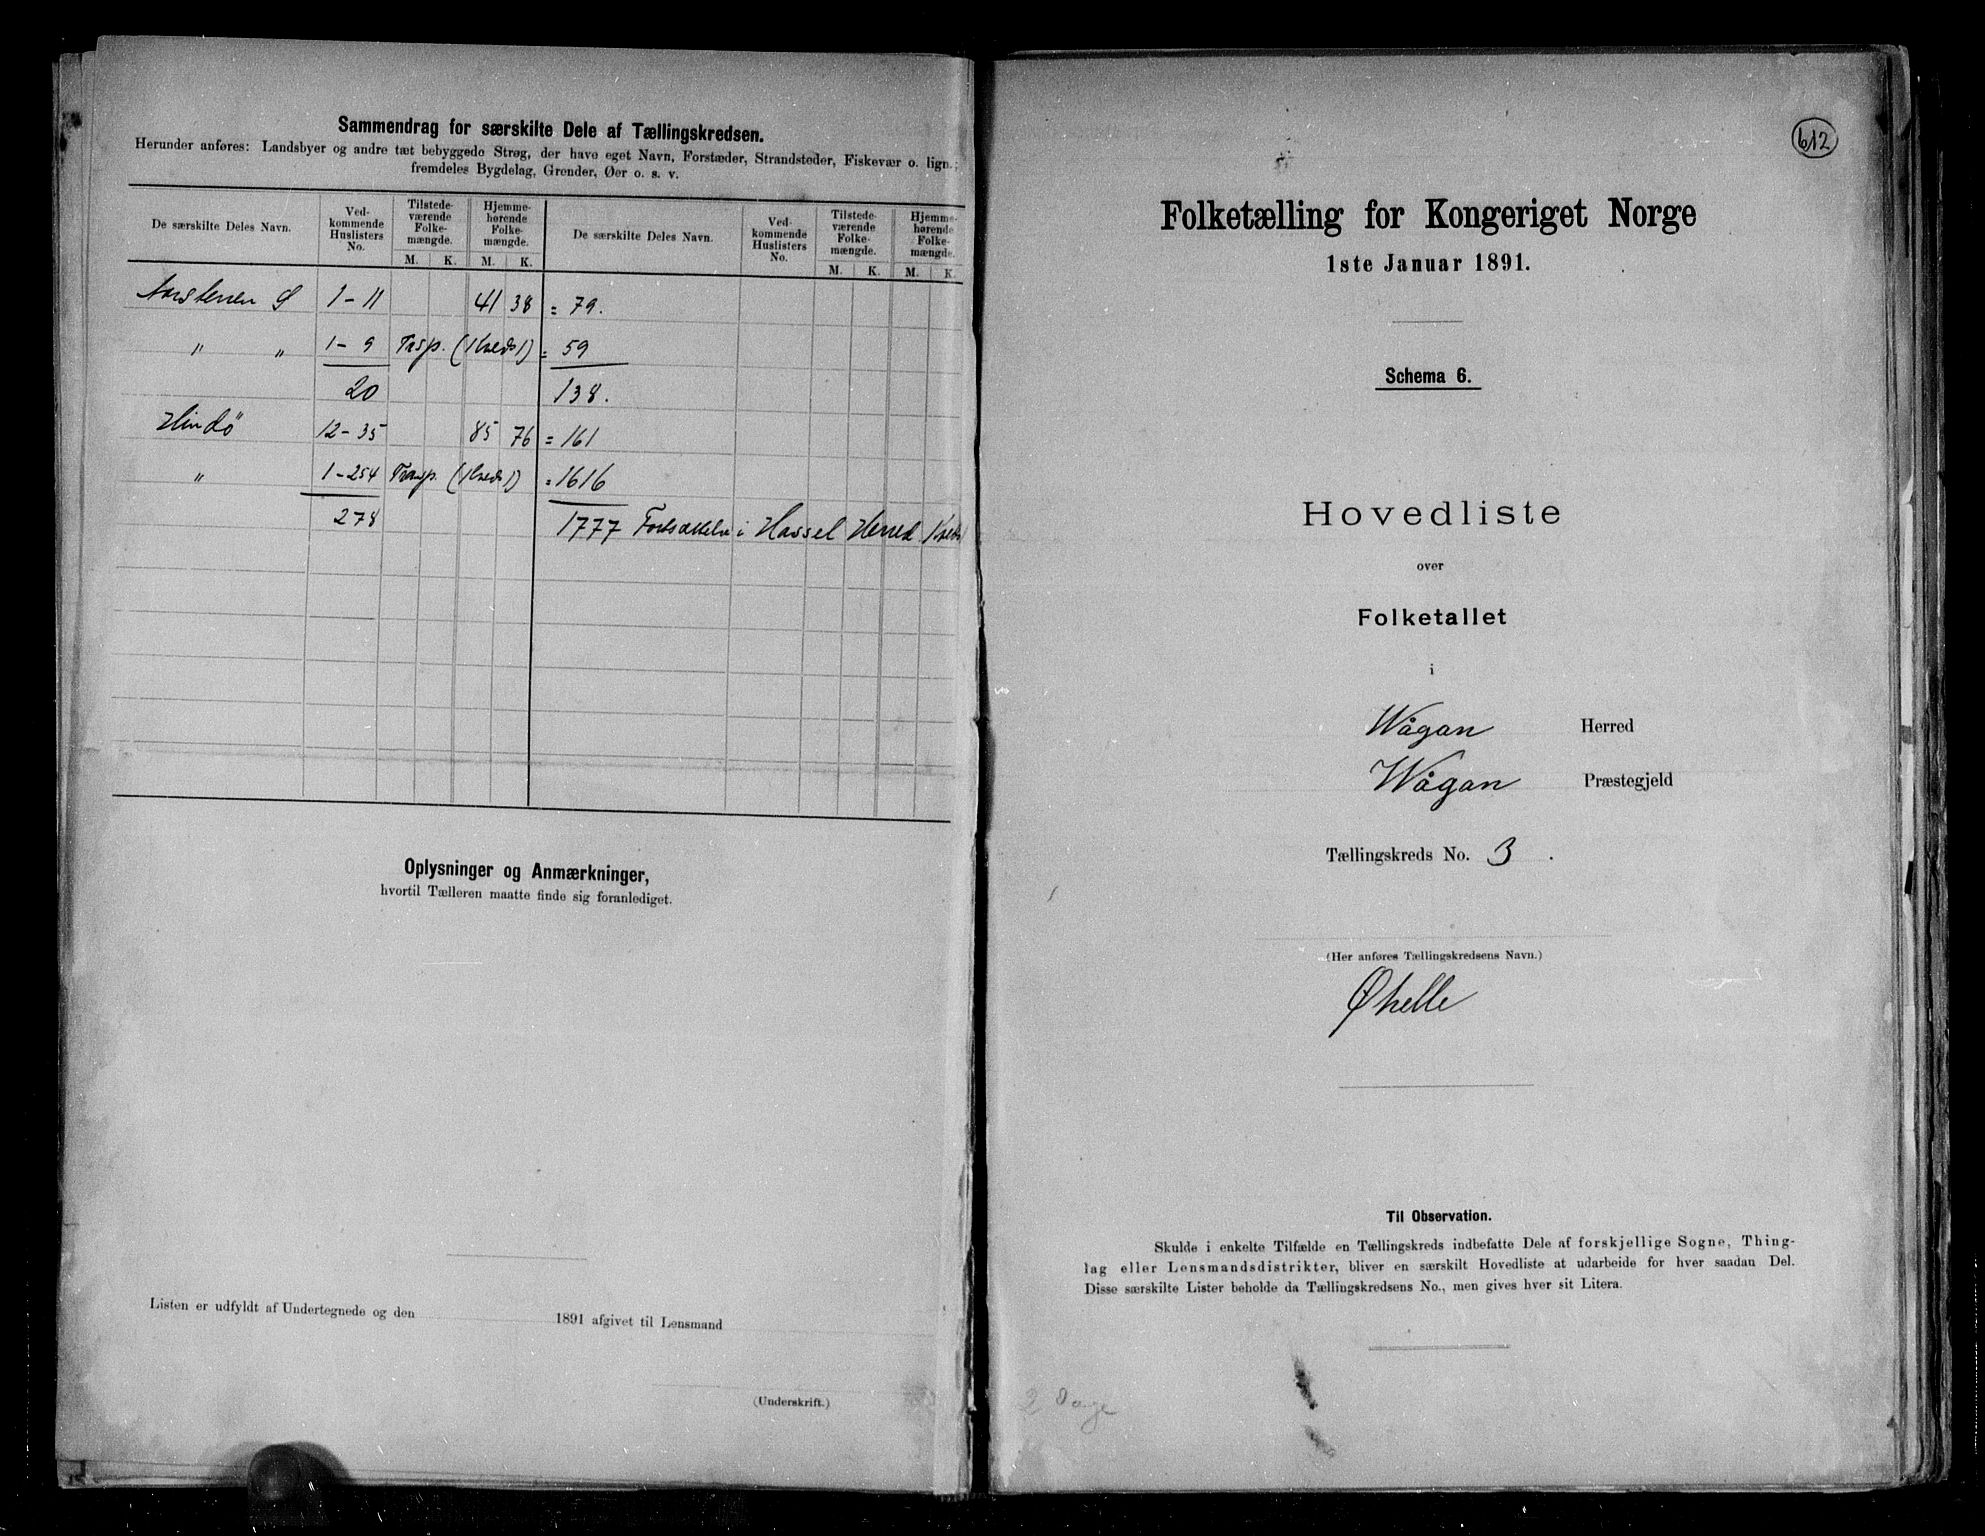 Sammendrag for særskilte Dele af Tællingskredsen.
Herunder anføres: Landsbyer og andre tæt bebyggede Strøg, der have eget Navn, Forstæder, Strandsteder, Fiskevær o. lign.;
fremdeles Bygdelag, Grender, Øer o. s. v.
De særskilte Deles Navn. Ved-kommende Huslisters No. Tilstede-værende Folke-mængde. M. K. Hjemme-hørende Folke-mængde. M. K. De særskilte Deles Navn. Ved-kommende Huslisters No. Tilstede-værende Folke-mængde. M. K. Hjemme-hørende Folke-mængde. M. K.
1-11 41 38 = 79.
" " 1-9 (Kreds 1) = 59
20 138.
Hindö 12-35 85 76 = 161
" 1-254 Transp. (Kreds 1) = 1616
278 1777 Fortsættelse i Hassel Herred
Oplysninger og Anmærkninger,
hvortil Tælleren maatte finde sig foranlediget.
Listen er udfyldt af Undertegnede og den 1891 afgivet til Lensmand
(Underskrift.)
612
Folketælling for Kongeriget Norge
1ste Januar 1891.
Schema 6.
Hovedliste
over
Folketallet
i
Wågan Herred
Wågan Præstegjeld
Tællingskreds No. 3.
(Her anføres Tællingskredsens Navn.)
Øhelle
Til Observation.
Skulde i enkelte Tilfælde en Tællingskreds indbefatte Dele af forskjellige Sogne, Thing-
lag eller Lensmandsdistrikter, bliver en særskilt Hovedliste at udarbeide for hver saadan Del.
Disse særskilte Lister beholde da Tællingskredsens No., men gives hver sit Litera.